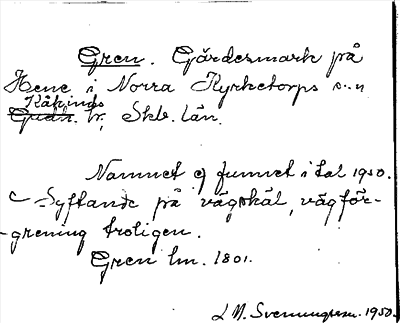 Gren. Gärdesmark på
Hene i Norra Kyrketorps s:n
Kåkinds
hr, Skb. län.
Namnet ej funnet i tal 1950.
Syftande på vägskäl, vägför-
-grening troligen.
Gren lm. 1801.
L M. Svenungsson. 1950.